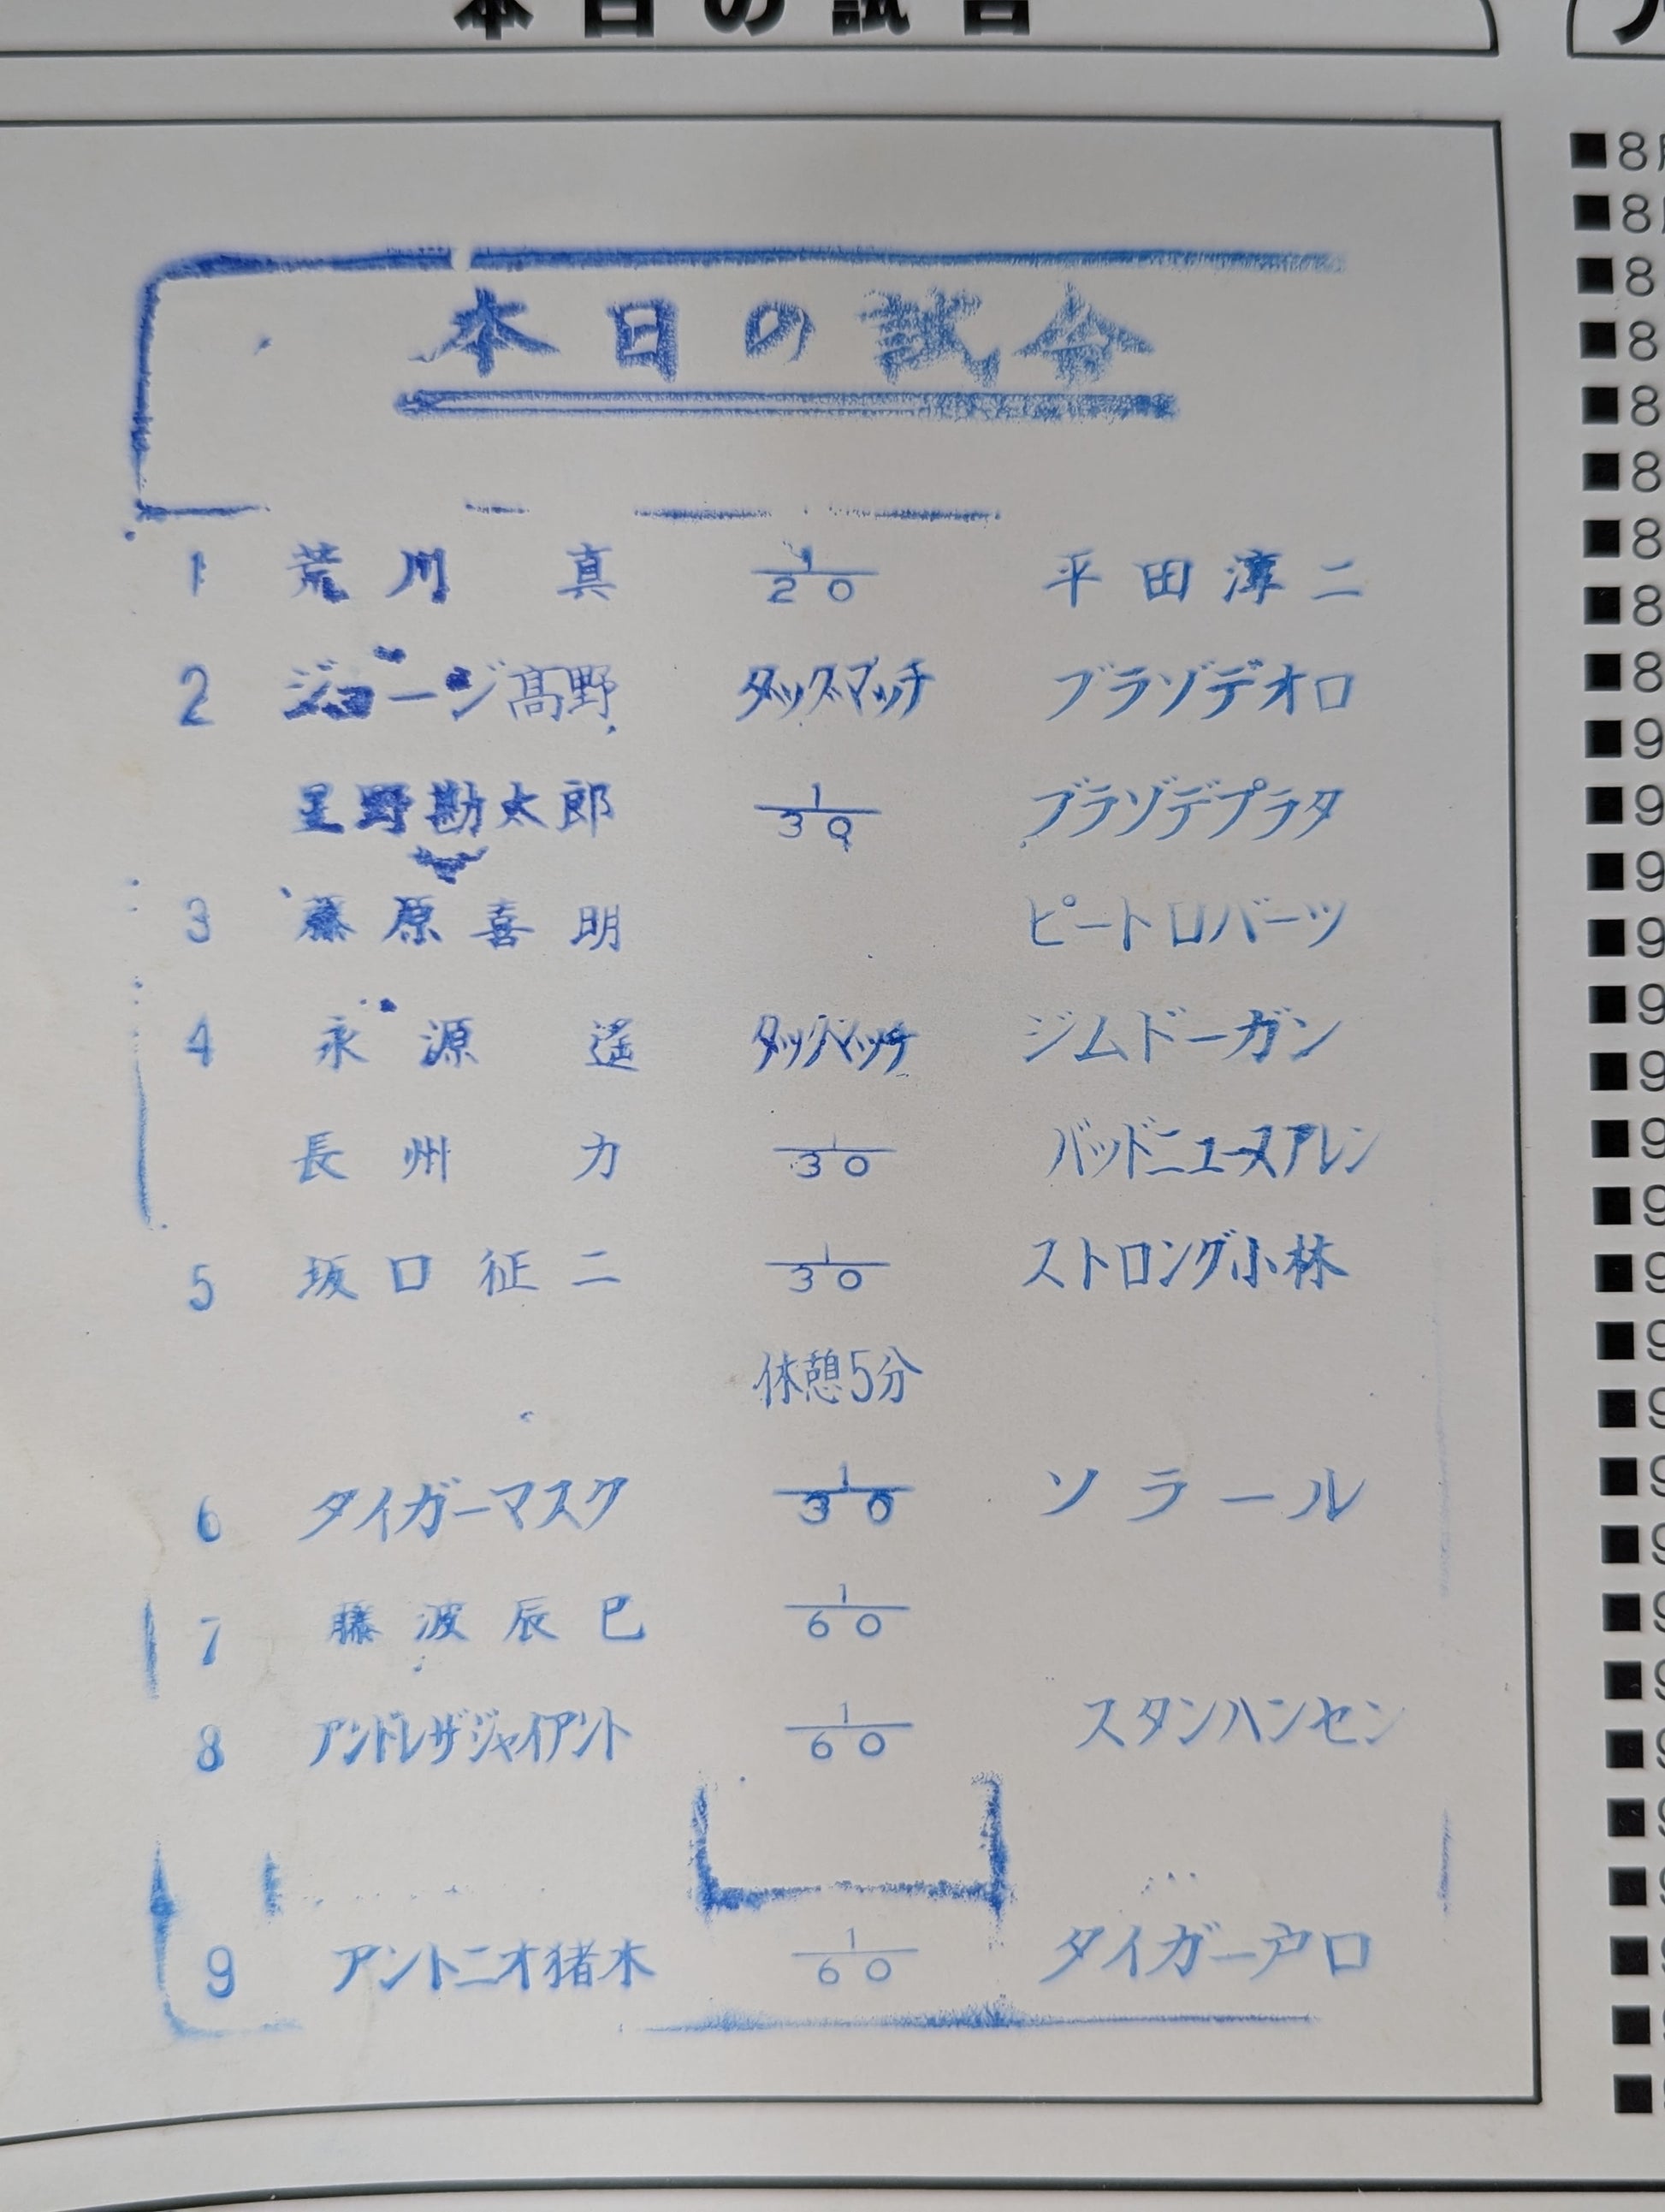 本日の試合
本日の試合
1 荒川 真 1/20 平田淳二
2 ジョージ髙野 タッグマッチ ブラソデオロ
星野勘太郎 1/30 ブラソデプラタ
3 藤原喜明 ピートロバーツ
4 永源 遥 タッグマッチ ジムドーガン
長州 力 1/30 バッドニュースアレン
5 坂口征二 1/30 ストロング小林
休憩5分
6 タイガーマスク 1/30 ソラール
7 藤波辰巳 1/60
8 アンドレザジャイアント 1/60 スタンハンセン
9 アントニオ猪木 1/60 タイガー戸口
■8
■8
■8
■8
■8
■8
■8
■8
■8
■9
■9
■9
■9
■9
■9
■9
■9
■9
■9
■9
■9
■9
■9
■9
■9
■9
■9